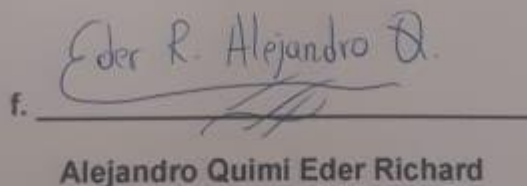 Eder R. Alejandro Q.
f.
Alejandro Quimi Eder Richard